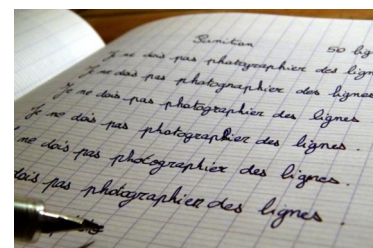 Punition 50 lig
Je ne dois pas photographier des lign
Je ne dois pas photographier des lignes
Je ne dois pas photographier des lignes
Je ne dois pas photographier des lignes.
ne dois pas photographier des lignes.
dois pas photographier des lignes.